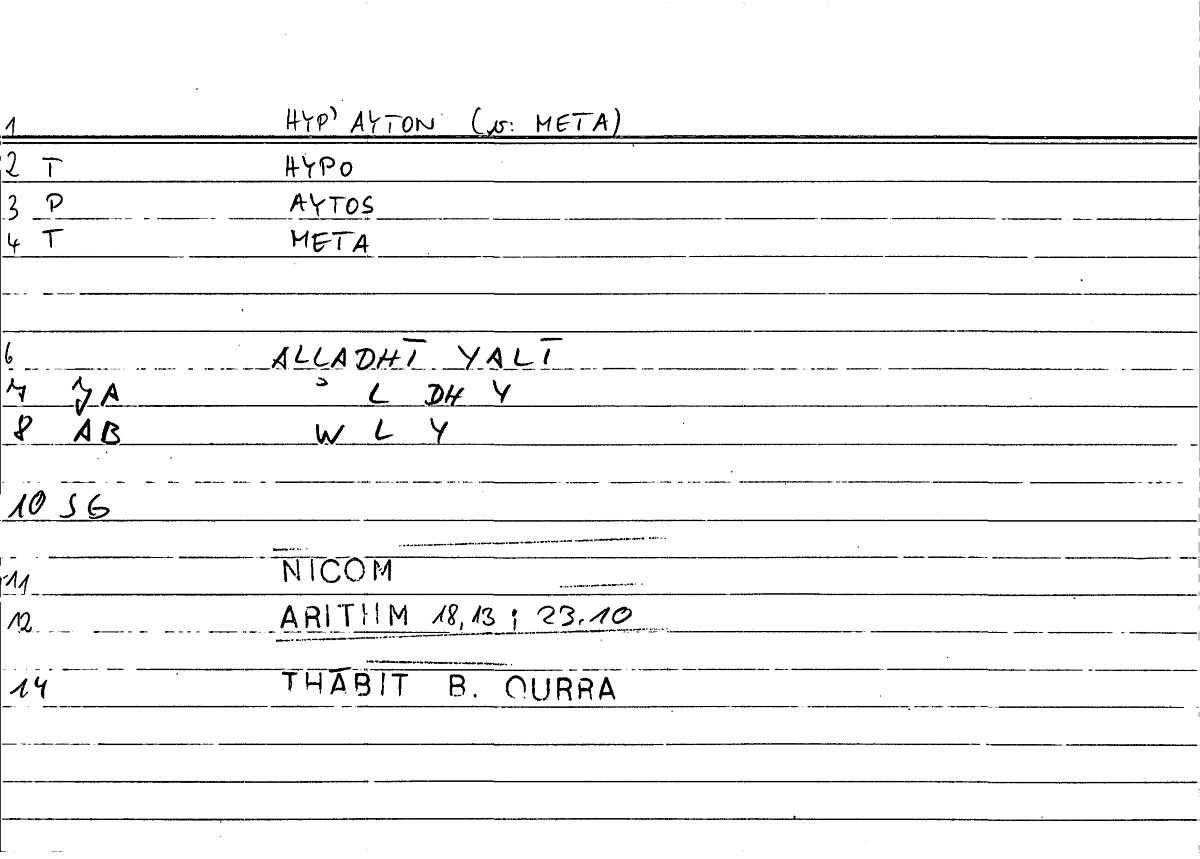 1 HYP' AYTON (v: META)
2 T HYPO
3 P AYTOS
4 T META
6 ALLADHĪ YALĪ
7 JA ʾ L DH Y
8 AB W L Y
10 SG
11 NICOM
12 ARITHM 18,13 ; 23.10
14 THĀBIT B. QURRA